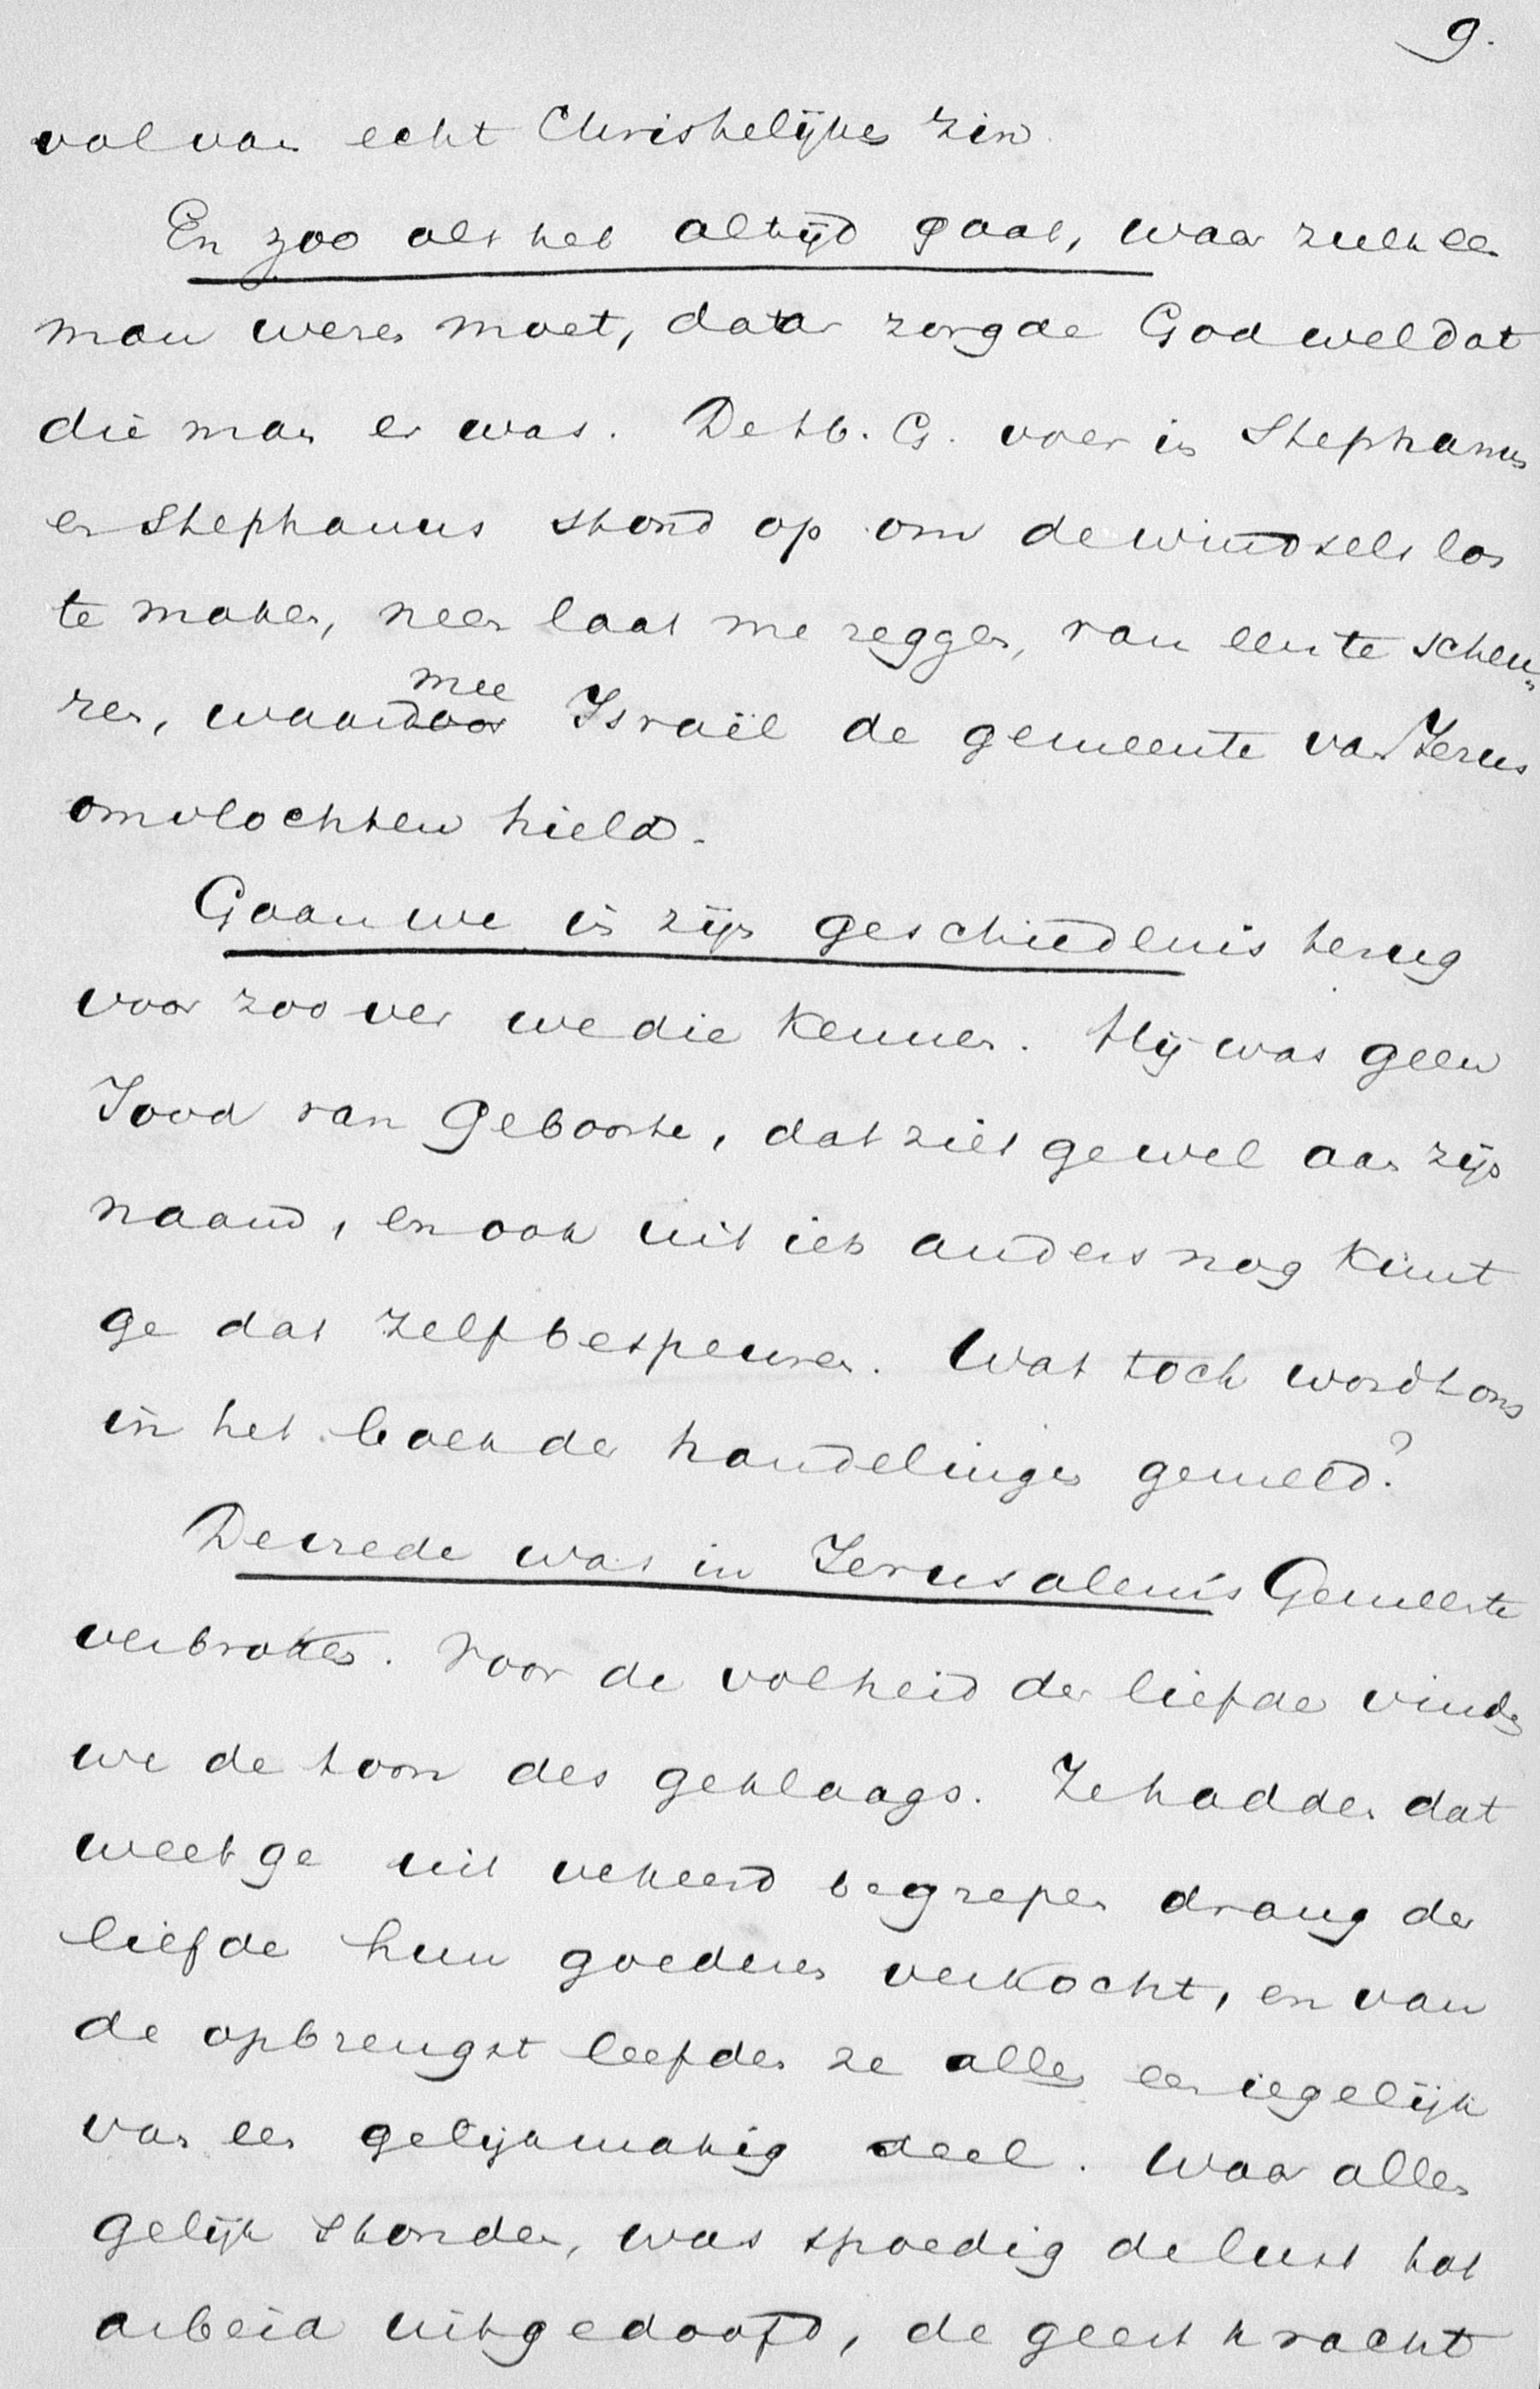 9.
vol van echt Christelijken zin.
En zoo als het altijd gaat, waar zulk een
man wezen moet, daar zorgde God wel dat
die man er was. De H. G. voer in Stephanus
en Stephanus stond op om de windsels los
te maken, neen laat me zeggen, van een te scheu„
ren, waardoor mee Israël de gemeente van Jerus
omvlochten hield.
Gaan we in zijn geschiedenis terug
voor zoo ver we die kennen. Hij was geen
Jood van geboorte, dat ziet ge wel aan zijn
naam, en ook uit iets anders nog kunt
ge dat zelf bespeuren. Wat toch wordt ons
in het boek der handelingen gemeld?
De vrede was in Jerusalem's Gemeente
verbroken. Voor de volheid der liefde vinden
we de toon des geklaags. Ze hadden dat
weet ge uit verkeerd begrepen drang der
liefde hun goederen verkocht, en van
de opbrengst leefden ze allen een iegelijk
van een gelijkmatig deel. Waar allen
gelijk stonden, was spoedig de lust tot
arbeid uitgedoofd, de geestkracht